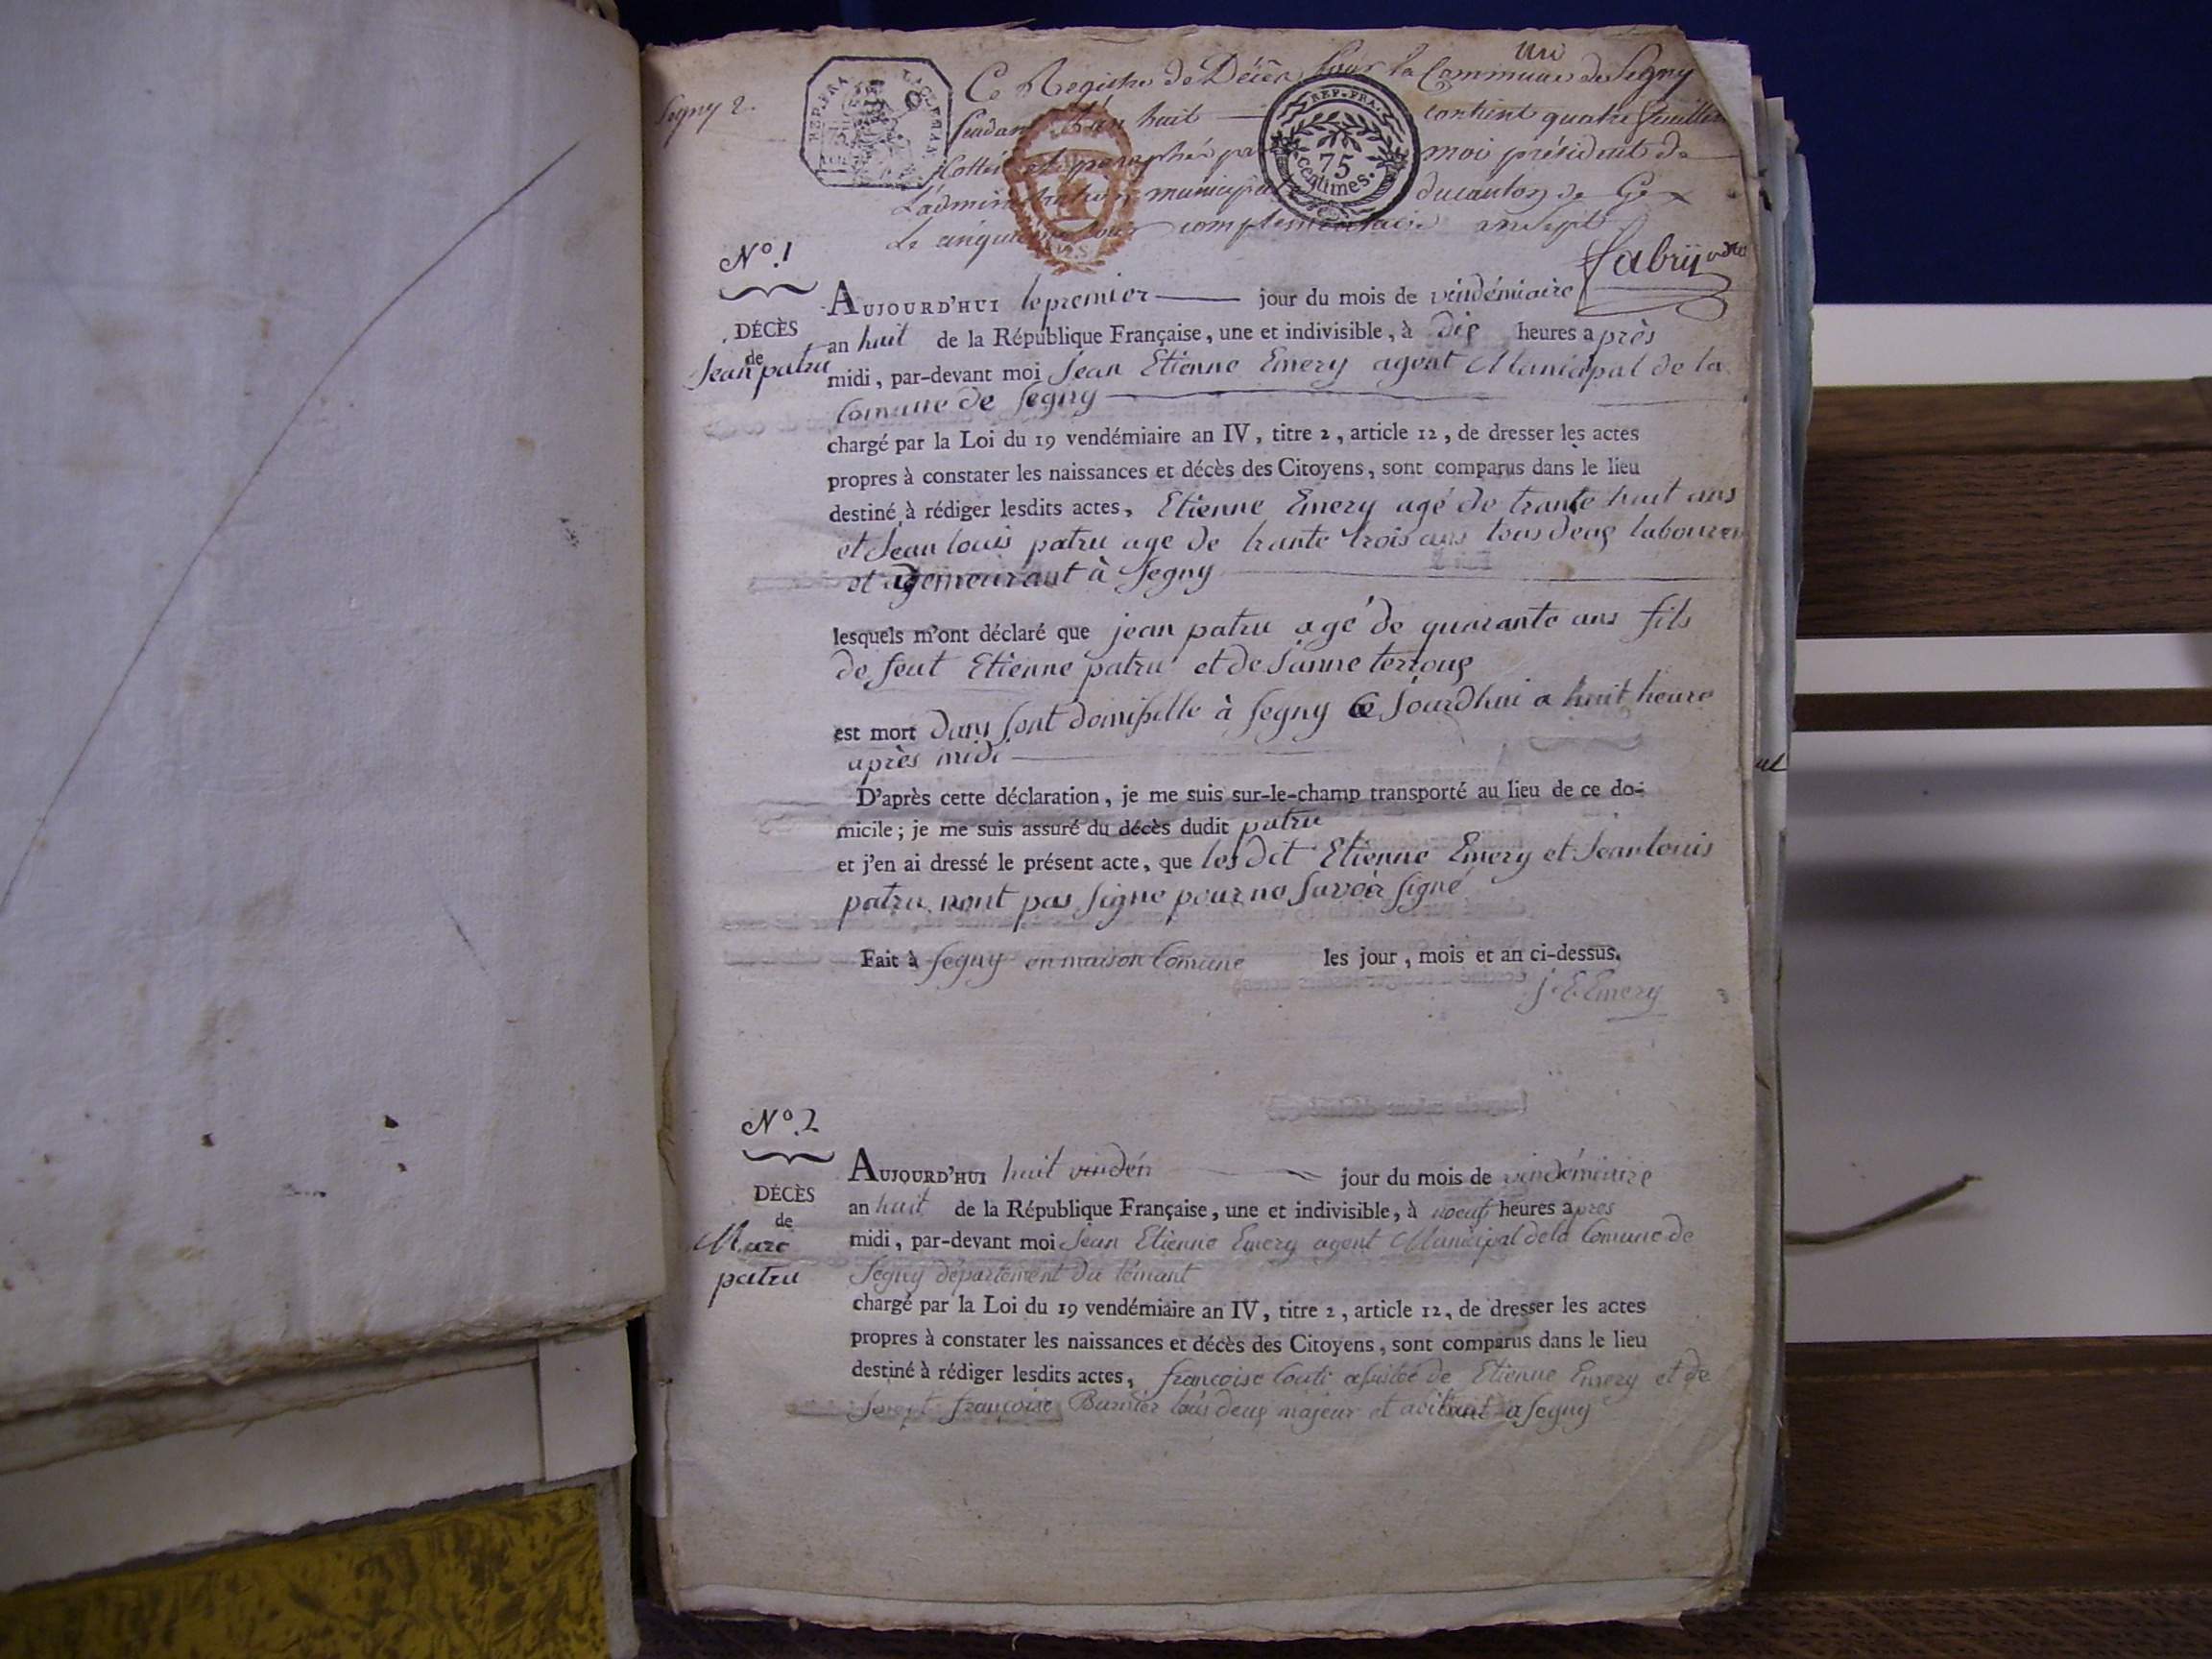 Segny 2.
un
Ce Registre de Décès pour la Commune de Segny
pendant l'an huit contient quatre feuillets
Cottés et paraphés par moi président de
L'administration municipale du canton de Gex
Le cinquieme jour complementaire an sept
fabry
REP. FRA.
75
centimes.
N.º 1
DÉCÈS
de
Jean patru
AUJOURD'HUI le premier jour du mois de vindémiaire
an huit de la République Française, une et indivisible, à dis heures après
midi, par-devant moi Jean Etienne Emery agent Municipal de la
Comune de Segny
chargé par la Loi du 19 vendémiaire an IV, titre 2, article 12, de dresser les actes
propres à constater les naissances et décès des Citoyens, sont comparus dans le lieu
destiné à rédiger lesdits actes, Etienne Emery agé de trante huit ans
et Jean louis patru age de trante trois ans tous deus laboureu
et demeurant à Segny
lesquels m'ont déclaré que jean patru agé de quarante ans fils
de feut Etienne patru et de janne terrous
est mort dans sont domisille à Segny ce Jourdhui a huit heure
après midi
D'après cette déclaration, je me suis sur-le-champ transporté au lieu de ce do-
micile; je me suis assuré du décès dudit patru
et j'en ai dressé le présent acte, que lesdit Etienne Emery et Jean louis
patru nont pas signe pour ne savoir signé
Fait à Segny en maison Comune les jour, mois et an ci-dessus.
j. E Emery
N.º 2
DÉCÈS
de
Marc
patru
AUJOURD'HUI huit vindém jour du mois de vindémiaire
an huit de la République Française, une et indivisible, à noeuf heures apres
midi, par-devant moi Jean Etienne Emery agent Municipal de la Comune de
Segny département du lémant
chargé par la Loi du 19 vendémiaire an IV, titre 2, article 12, de dresser les actes
propres à constater les naissances et décès des Citoyens, sont comparus dans le lieu
destiné à rédiger lesdits actes, francoise Couti assistée de Etienne Emery et de
francoise Burnier tous deus majeur et abitant a Segny